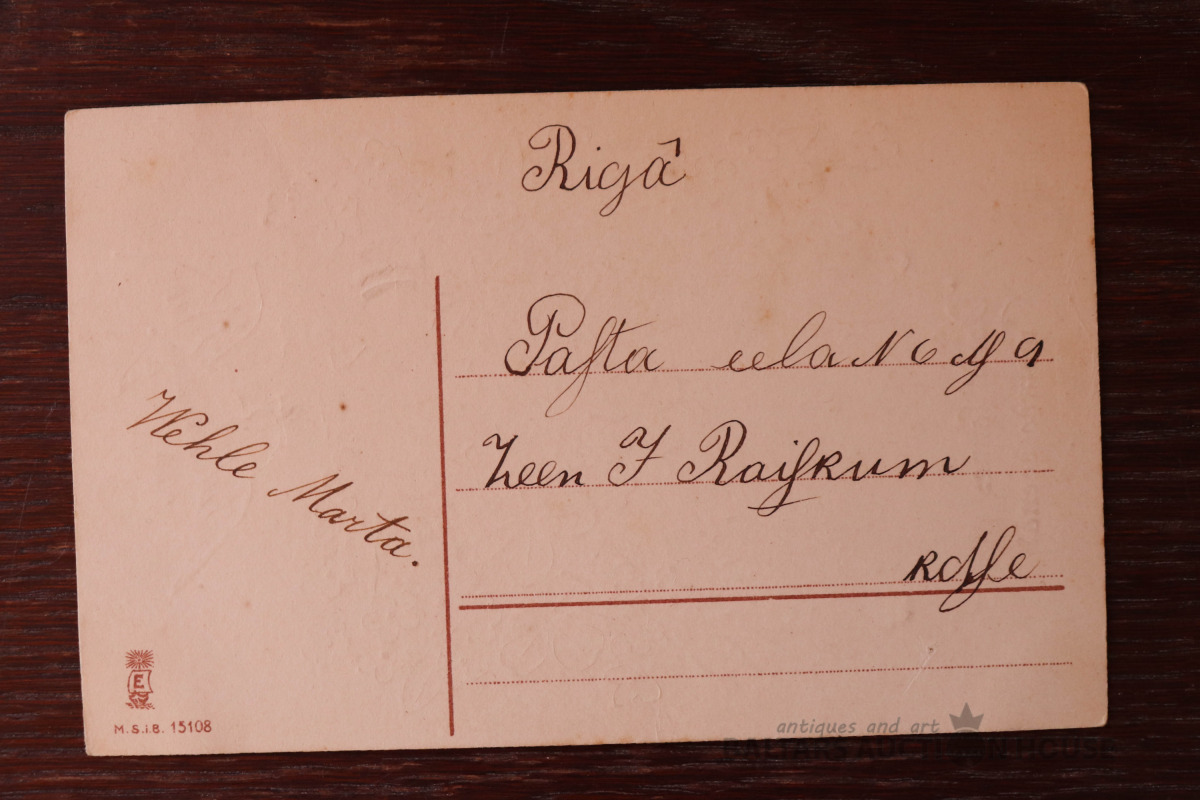 Rigâ
Paſta eela No
Zeen J Raiſkum
Wehle Marta.
E
M.S.i.B. 15108
antiques and art
BALTARS AUCTION HOUSE